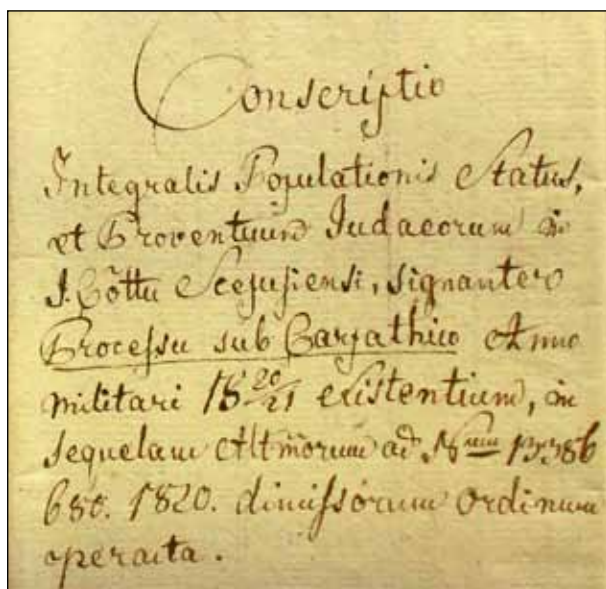 Conscriptio
Integralis Populationis Status,
et Proventuum Judaeorum in
I. Cõttu Scepusiensi, signanter
Processu sub Carpathico Anno
militari 18 20/21 existentium, in
sequelam Altm̃orum ad Num 13386
680. 1820. dimissorum ordinum
peracta.